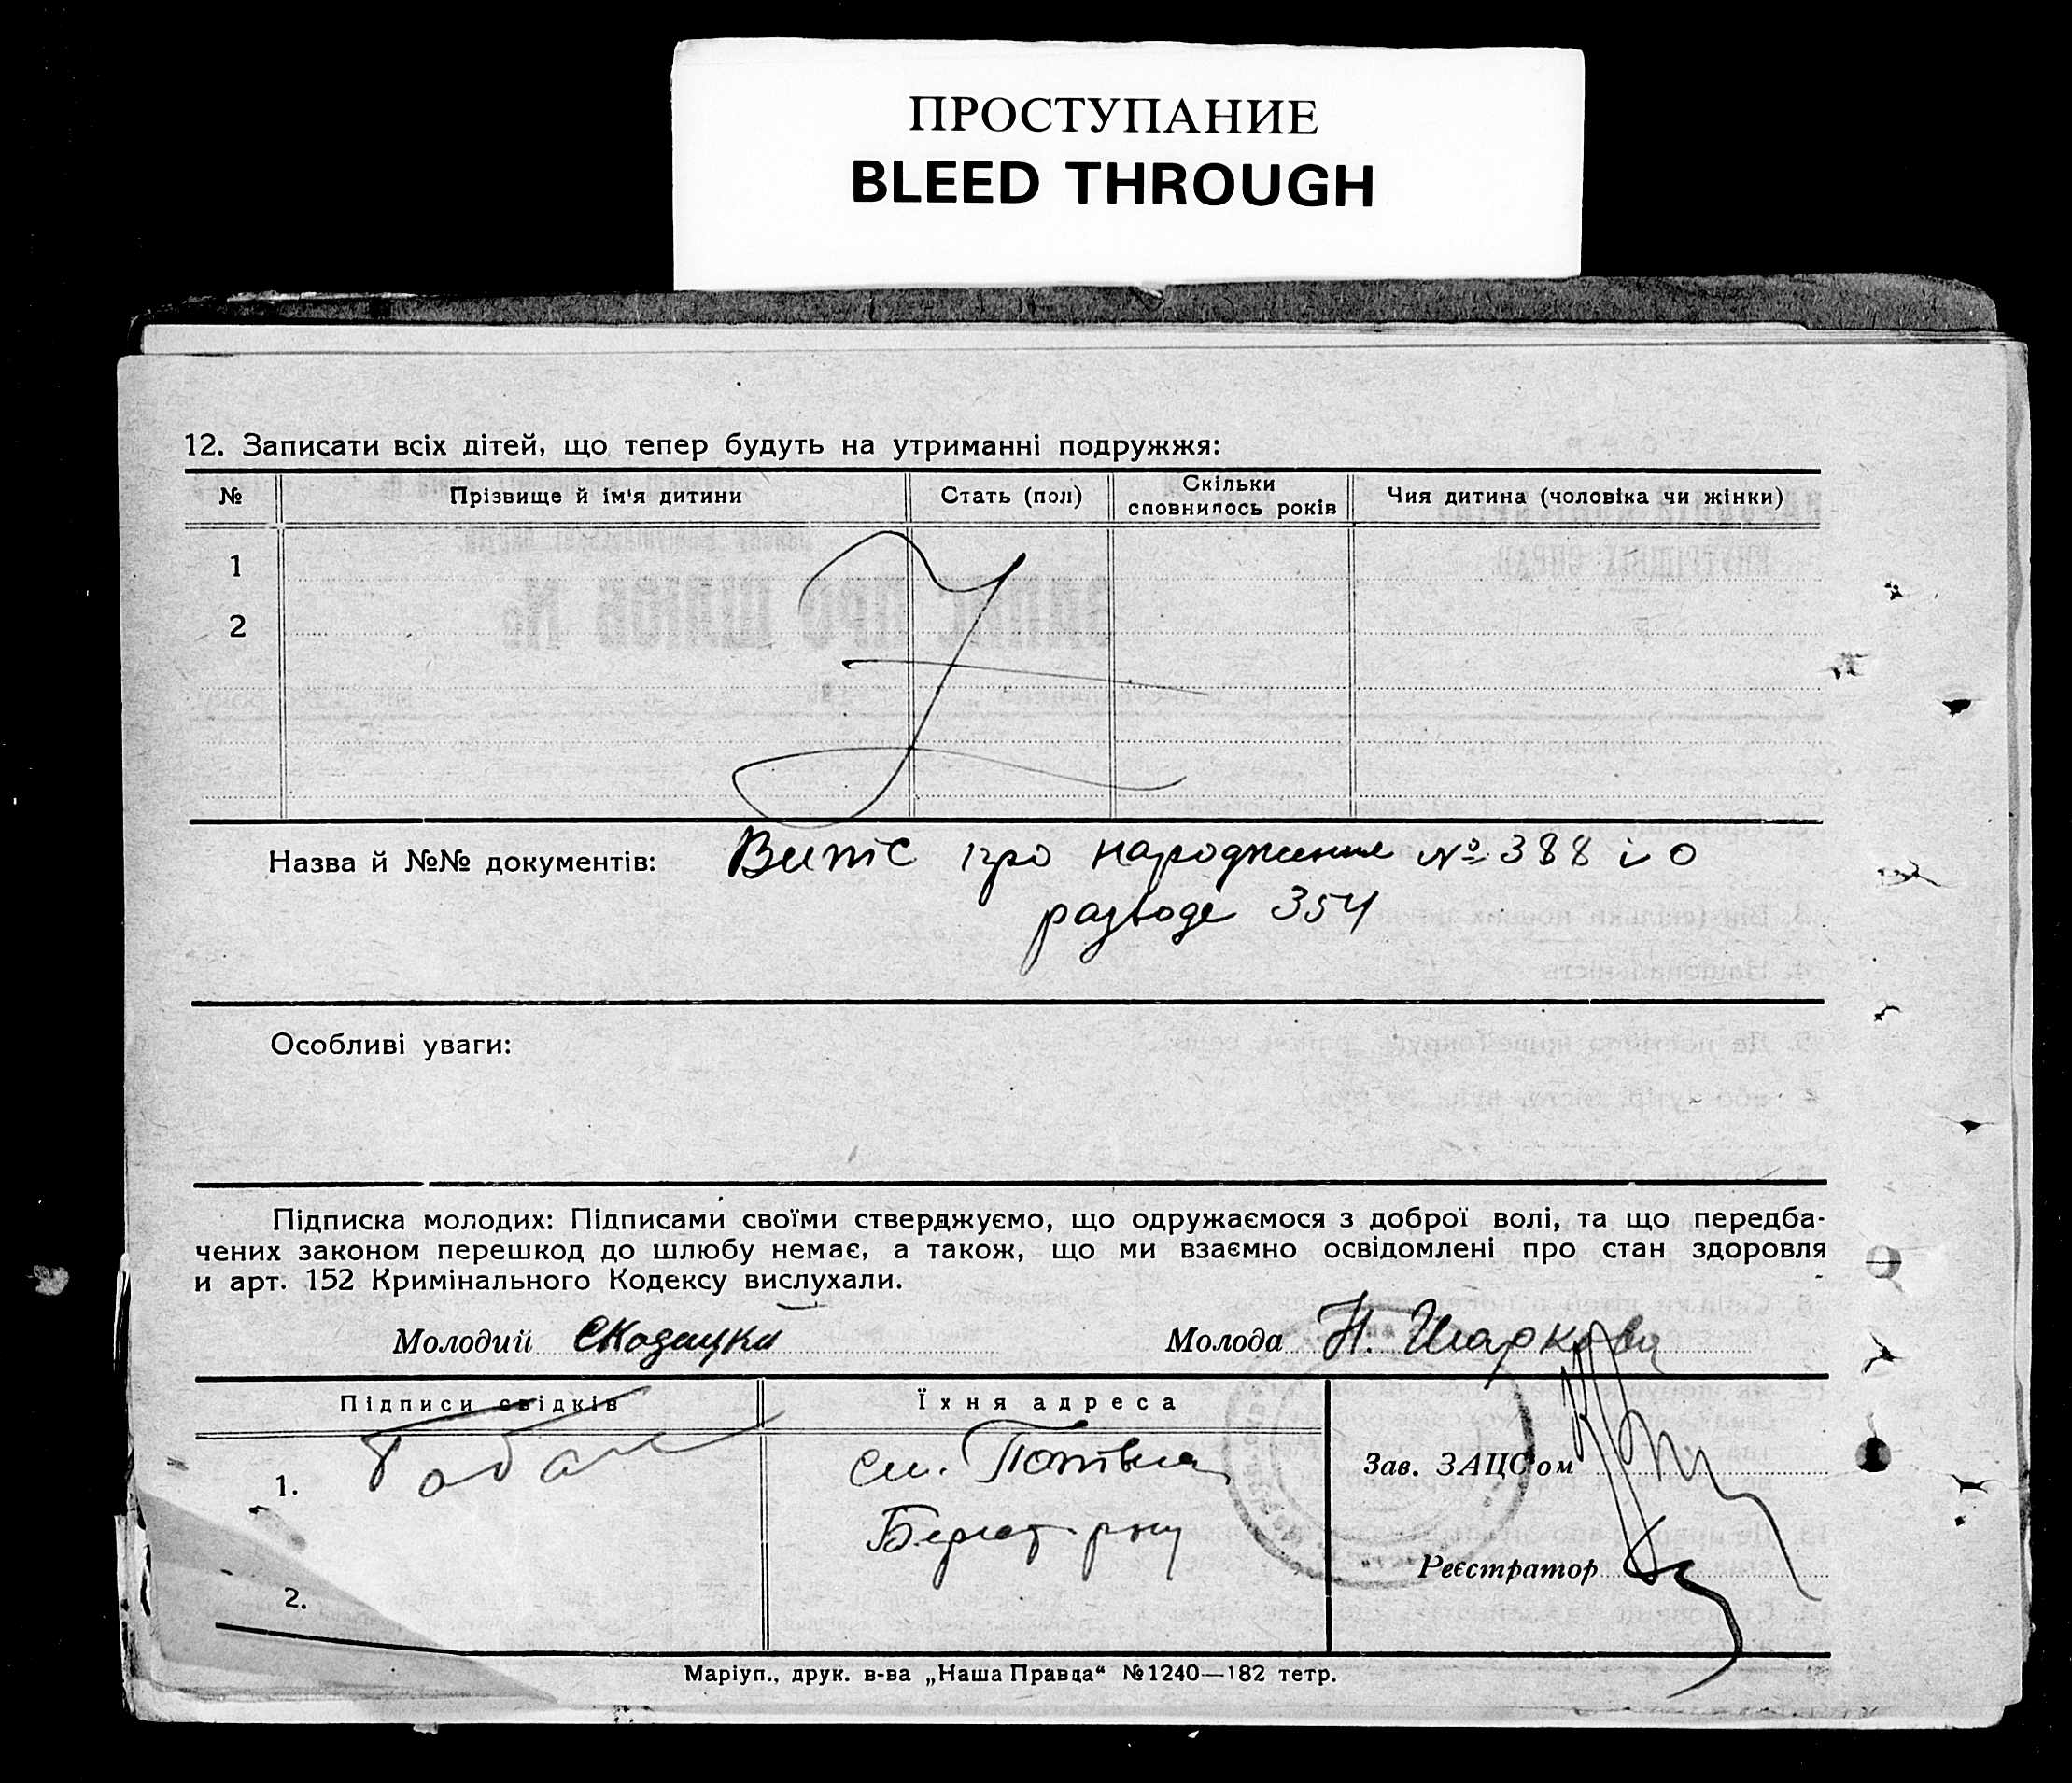 ПРОСТУПАНИЕ
BLEED THROUGH
12. Записати всіх дітей, що тепер будуть на утриманні подружжя:
№ Прізвище й ім'я дитини Стать (пол) Скільки сповнилось років Чия дитина (чоловіка чи жінки)
1
2
Назва й №№ документів: Витс про народження № 388 і о
разводе 354
Особливі уваги:
Підписка молодих: Підписами своїми стверджуємо, що одружаємося з доброї волі, та що передба-
чених законом перешкод до шлюбу немає, а також, що ми взаємно освідомлені про стан здоровля
и арт. 152 Кримінального Кодексу вислухали.
Молодий Молода Н. Шаркова
Підписи свідків Їхня адреса
1. ст.
Зав. ЗАЦС'ом
Реєстратор
2.
Маріуп., друк. в-ва „Наша Правда“ №1240—182 тетр.